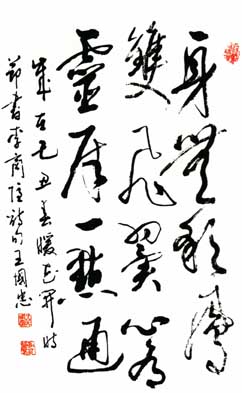 身無彩鳳
雙飛翼心有
靈犀一點通
歲在己丑春暖花開時
節書李商隱詩句王國忠